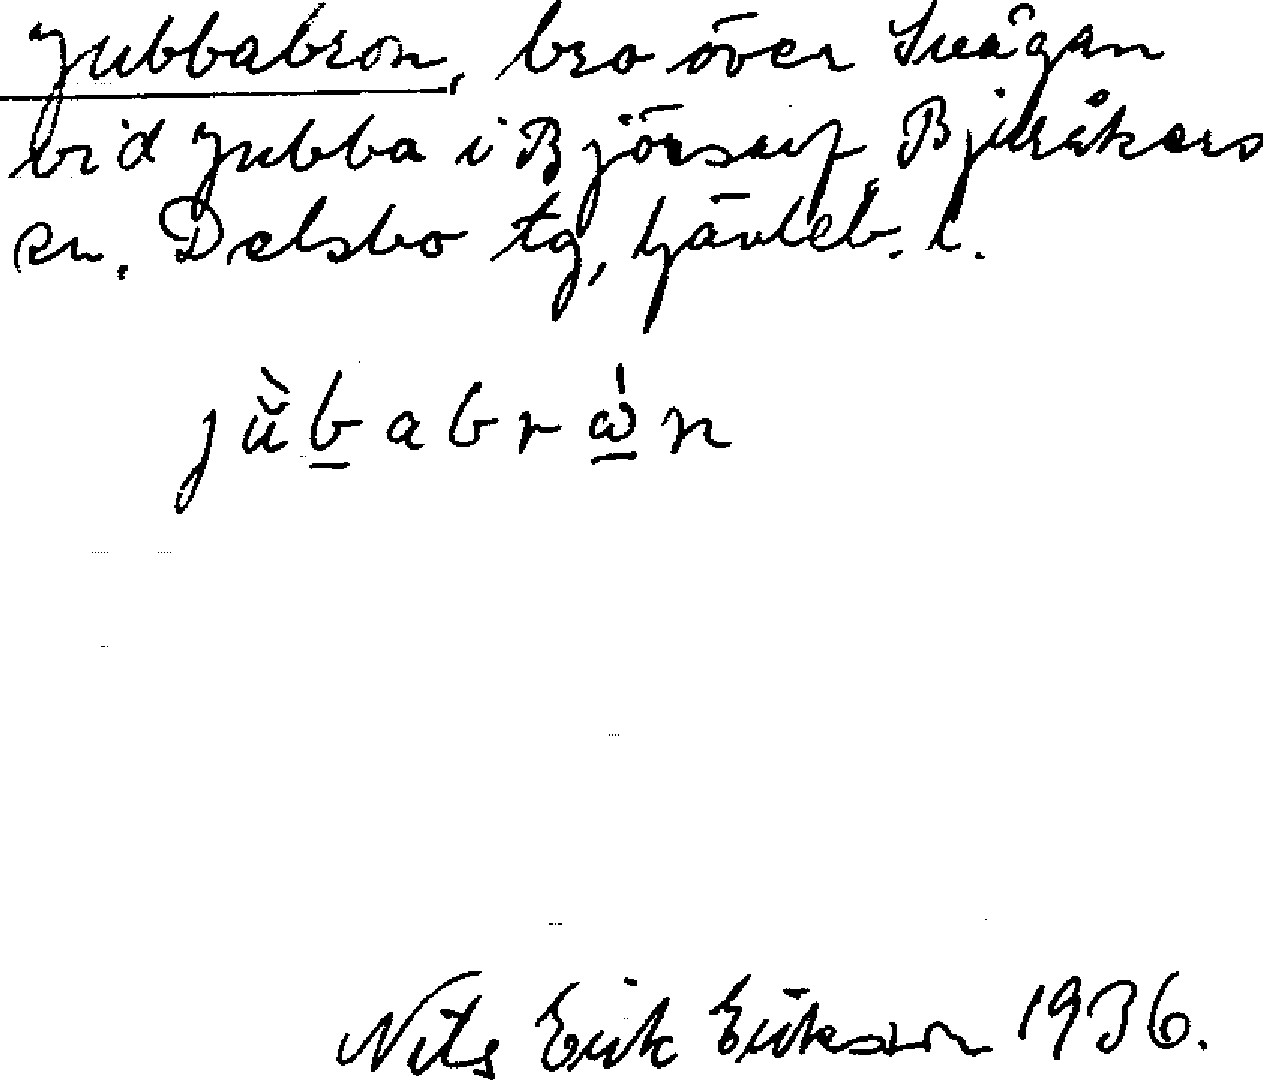 Jubbabron, bro över Svågan
vid Jubba i Björsarv, Bjuråkers
sn, Delsbo tg, Gävleb. l.
jùbabrón
Nils Erik Eriksson 1936.